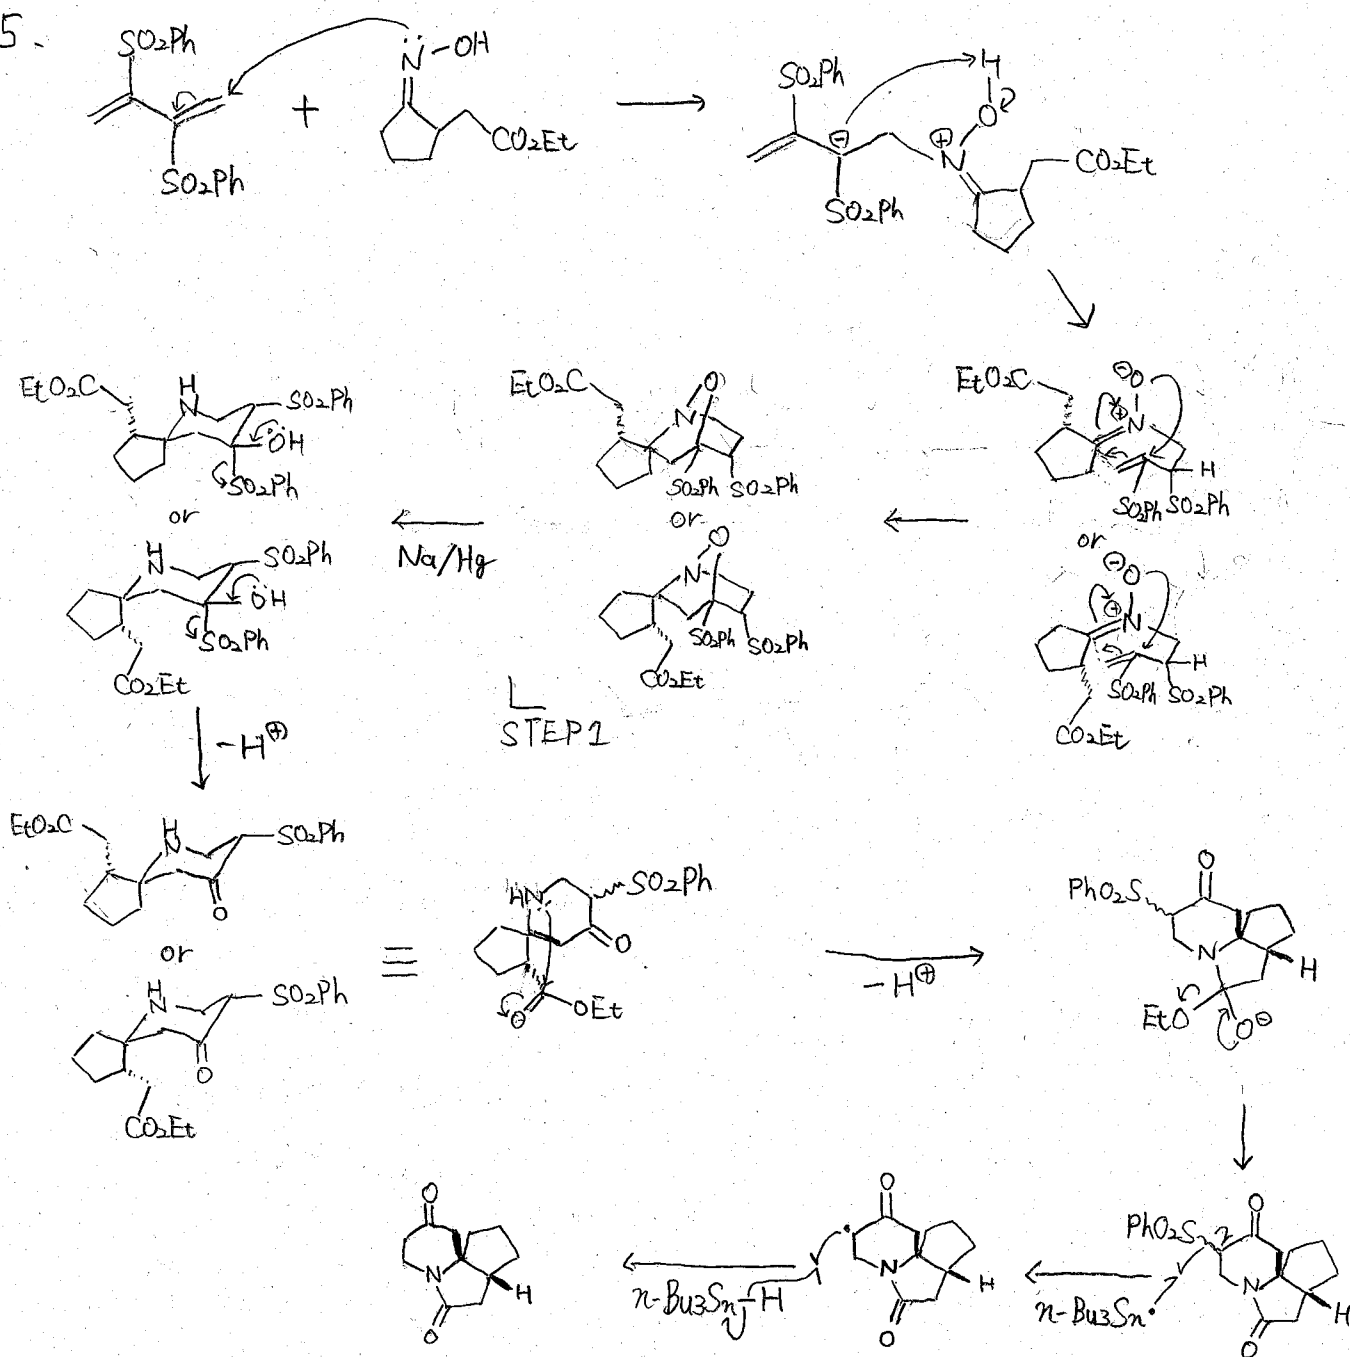 5.
SO₂Ph
SO₂Ph
+
N̈-OH
CO₂Et
SO₂Ph
⊖
SO₂Ph
H
O
⊕
N
CO₂Et
EtO₂C
⊖O
⊕
N
H
SO₂Ph SO₂Ph
or
⊖O
⊕
N
H
SO₂Ph SO₂Ph
CO₂Et
EtO₂C
N-O
SO₂Ph SO₂Ph
or
N-O
SO₂Ph SO₂Ph
CO₂Et
STEP1
Na/Hg
EtO₂C
H
N
SO₂Ph
ÖH
SO₂Ph
or
H
N
SO₂Ph
ÖH
SO₂Ph
CO₂Et
-H⊕
EtO₂C
H
N
SO₂Ph
O
or
H
N
SO₂Ph
O
CO₂Et
≡
HN
SO₂Ph
O
O
OEt
-H⊕
O
PhO₂S
N
H
EtO
O⊖
O
PhO₂S
N
H
O
n-Bu₃Sn·
O
·
N
H
O
n-Bu₃Sn-H
O
N
H
O